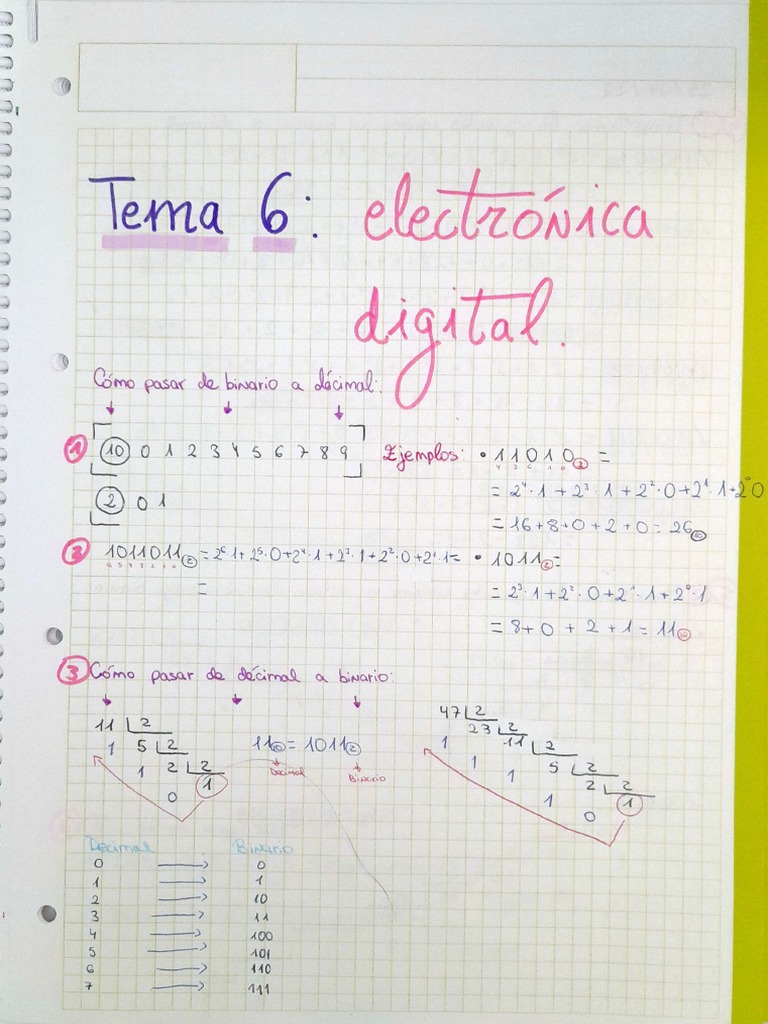 Tema 6: electrónica
digital.
Cómo pasar de binario a décimal:
1 10 0 1 2 3 4 5 6 7 8 9
2 0 1
Ejemplos: • 11010(2) =
4 3 2 1 0
= 2⁴·1 + 2³·1 + 2²·0 + 2¹·1 + 2⁰·0
= 16 + 8 + 0 + 2 + 0 = 26(10)
2 1011011(2) = 2⁶·1 + 2⁵·0 + 2⁴·1 + 2³·1 + 2²·0 + 2¹·1 =
6 5 4 3 2 1 0
=
• 1011(2) =
= 2³·1 + 2²·0 + 2¹·1 + 2⁰·1
= 8 + 0 + 2 + 1 = 11(10)
3 Cómo pasar de décimal a binario:
11 2
1 5 2
1 2 2
0 1
11(10) = 1011(2)
Decimal Binario
47 2
1 23 2
1 11 2
1 5 2
1 2 2
0 1
Decimal Binario
0 → 0
1 → 1
2 → 10
3 → 11
4 → 100
5 → 101
6 → 110
7 → 111